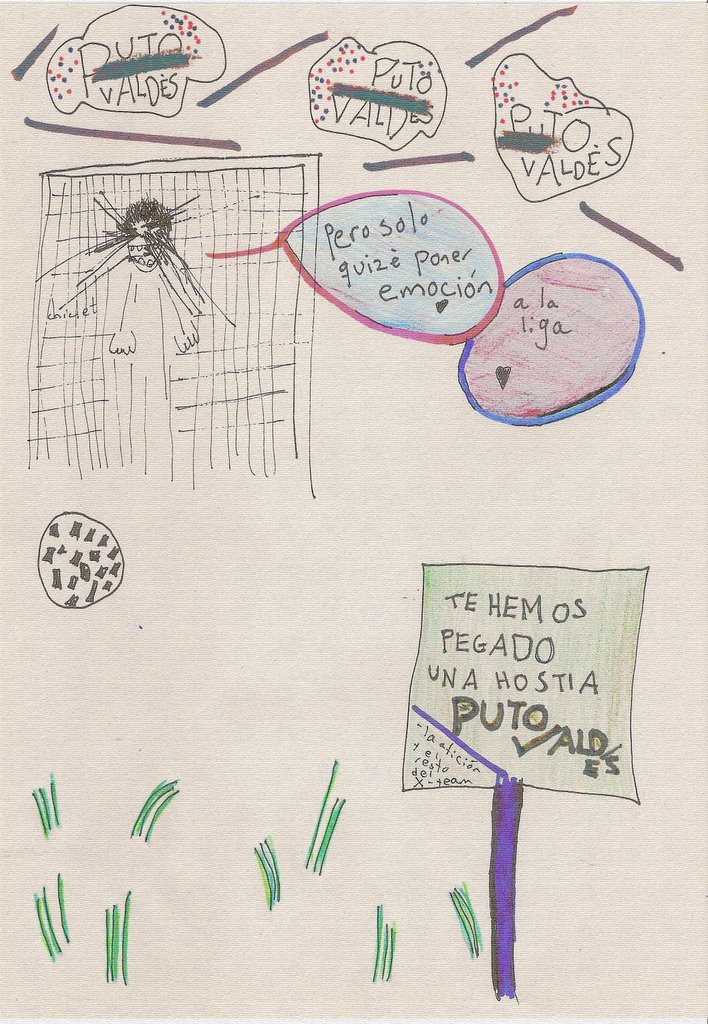 PUTO
VALDÈS
PUTO
VALDÈS
PUTO
VALDÈS
pero solo
quizè poner
emoción
a la
liga
chiclet
TE HEMOS
PEGADO
UNA HOSTIA
PUTO
VALDÉS
-la afición
y el
resto
del
X-team